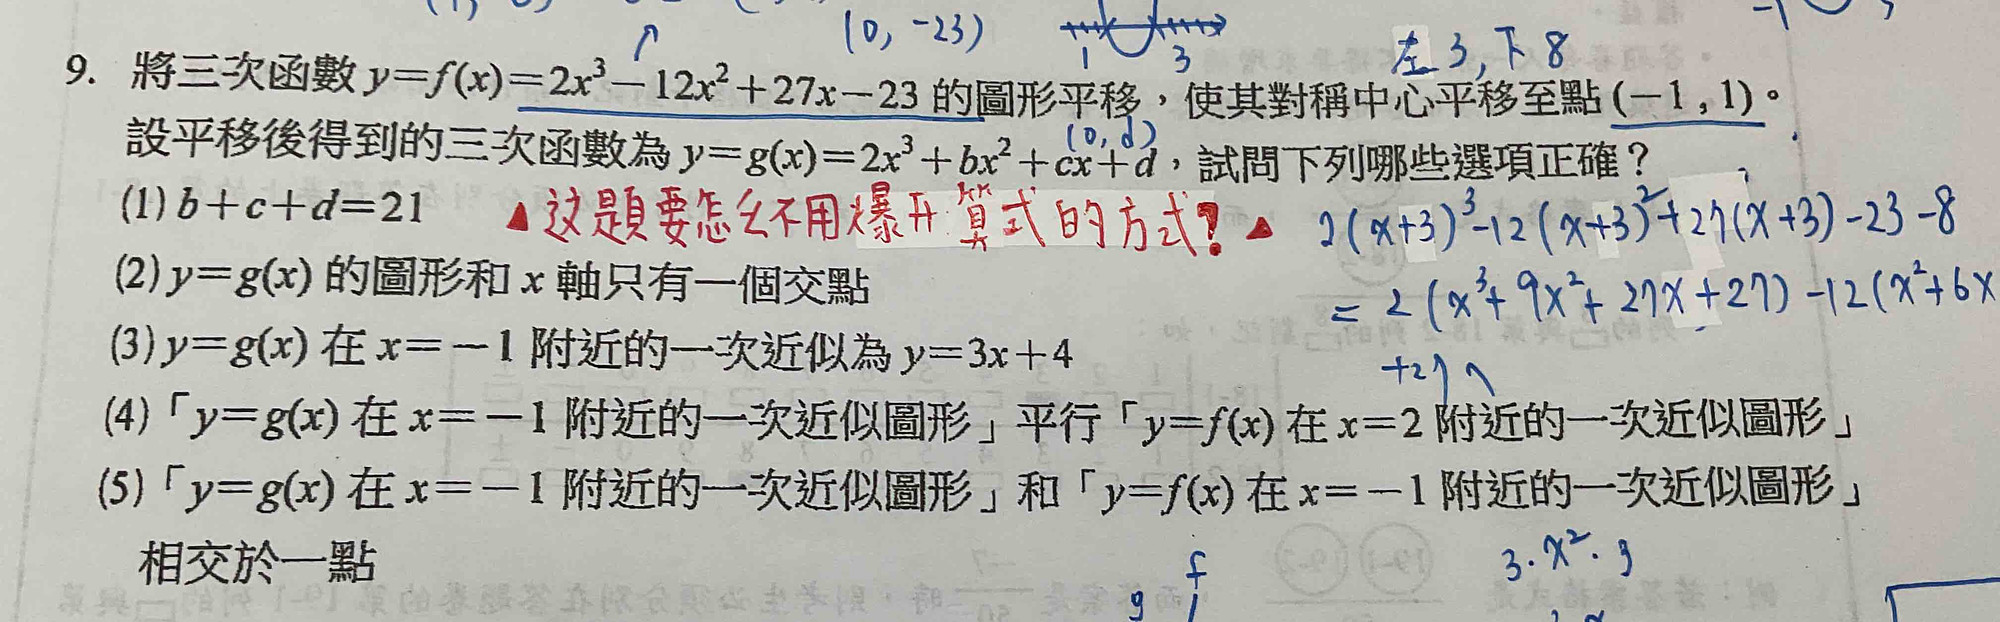 (0, -23)
1 3
左3,下8
9. 將三次函數 y=f(x)=2x³-12x²+27x-23 的圖形平移,使其對稱中心平移至點(-1,1)。
(0,d)
設平移後得到的三次函數為 y=g(x)=2x³+bx²+cx+d,試問下列哪些選項正確?
(1) b+c+d=21
▲这題要怎么不用爆开算式的方式?▲
2(x+3)³-12(x+3)²+27(x+3)-23-8
(2) y=g(x) 的圖形和 x 軸只有一個交點
= 2(x³+9x²+27x+27)-12(x²+6x
(3) y=g(x) 在 x=-1 附近的一次近似為 y=3x+4
+27
(4)「y=g(x) 在 x=-1 附近的一次近似圖形」平行「y=f(x) 在 x=2 附近的一次近似圖形」
(5)「y=g(x) 在 x=-1 附近的一次近似圖形」和「y=f(x) 在 x=-1 附近的一次近似圖形」
相交於一點
3·x²·3
f
9 1